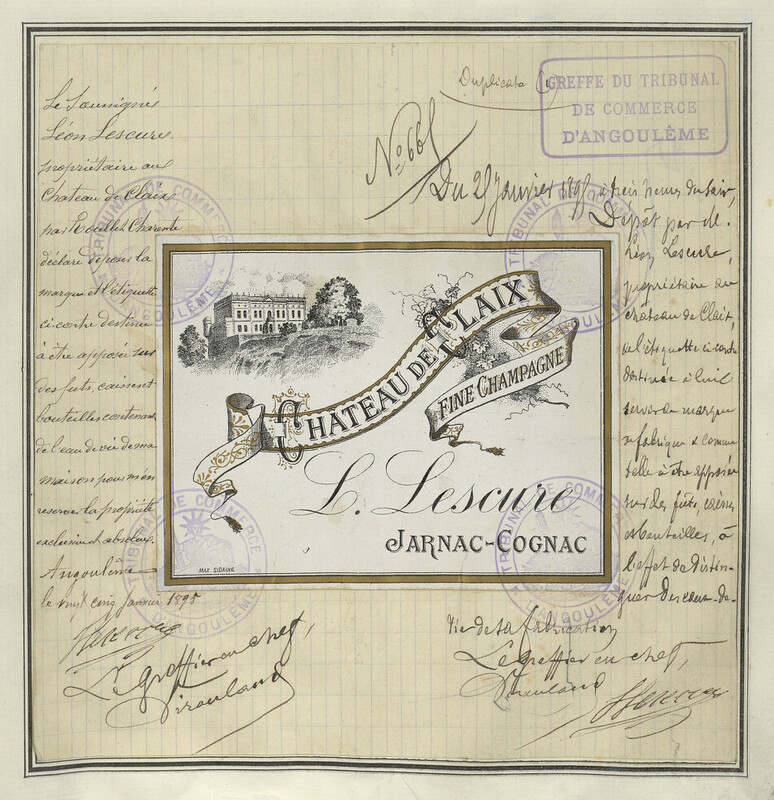 Duplicata
GREFFE DU TRIBUNAL
DE COMMERCE
D'ANGOULÊME
No 661
Du 25 Janvier 1895 à trois heures du soir,
Le Soussigné
Léon Lescure
propriétaire au
Chateau de Claix
par Roullet Charente
déclare déposer la
marque et l'étiquette
ci-contre destinée
à être apposée sur
des futs, caisses et
bouteilles contenant
de l'eau de vie de ma
maison pour m'en
réserver la propriété
exclusive et absolue.
Angoulême
le vingt cinq Janvier 1895
Le Greffier en chef,
CHATEAU DE CLAIX
FINE CHAMPAGNE
L. Lescure
JARNAC-COGNAC
MAX SIDAINE
Dépôt par M.
Léon Lescure,
propriétaire au
château de Claix,
de l'étiquette ci-contre
destinée à lui
servir de marque
de fabrique & comme
telle à être apposée
sur des fûts, caisses
et bouteilles, à
l'effet de distin-
guer des eaux-de-
vie de sa fabrication
Le Greffier en chef,
TRIBUNAL DE COMMERCE
D'ANGOULÊME
TRIBUNAL DE COMMERCE
D'ANGOULÊME
TRIBUNAL DE COMMERCE
D'ANGOULÊME
TRIBUNAL DE COMMERCE
D'ANGOULÊME